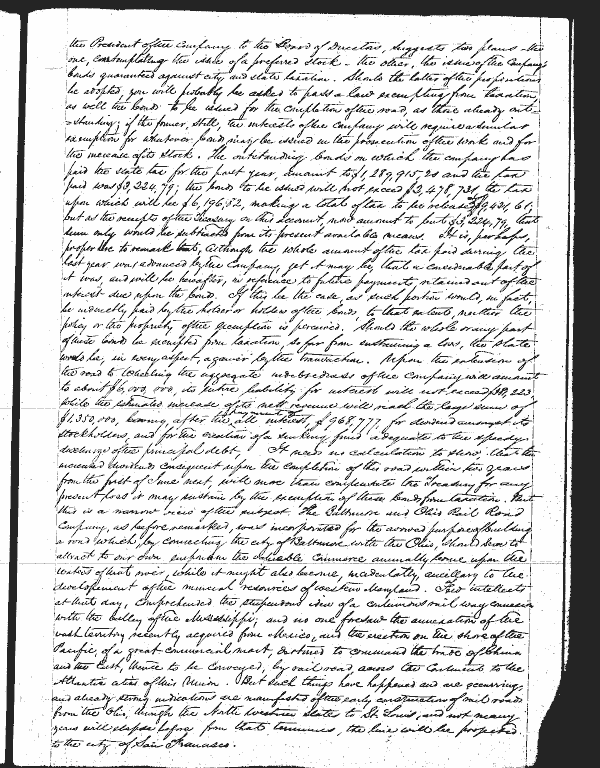 the President of the Company to the Board of Directors, suggests two plans - the
one, contemplating the issue of a preferred stock - the other, the issue of the Company's
bonds guaranteed against city and state taxation. Should the latter of the propositions
be adopted, you will probably be asked to pass a law exempting from taxation,
as well the bonds to be issued for the completion of the road, as those already out=
=standing; if the former, still, the interests of the company will require a similar
exemption for whatever bonds may be issued in the prosecution of the work and for
the increase of its stock. The outstanding bonds on which the company has
paid the state tax for the past year, amount to $1,289,915,20 and the tax
paid was $3,224,79; the bonds to be issued will not exceed $2,478,731 the tax
upon which will be $6,196,82, making a total of tax to be released of $9,421,61;
but as the receipts of the Treasury on this account, now amount to but $3,224,79, that
sum only would be subtracted from its present available means. It is, perhaps,
proper here to remark that, although the whole amount of the tax paid during the
last year was advanced by the Company, yet it may be, that a considerable part of
it was, and will be hereafter, in reference to future payments, retained out of the
interest due upon the bonds. If this be the case, as such portion would, in fact,
be indirectly paid by the holder or holders of the bonds, to that extent, neither the
policy or the propriety of the exemption is perceived. Should the whole or any part
of these bonds be exempted from taxation, so far from sustaining a loss, the State
would be, in every aspect, a gainer by the transaction. Upon the extension of
the road to Wheeling the aggregate indebtedness of the Company will amount
to about $6,000,000, its entire liability for interest will not exceed
while the estimated increase of the nett revenue will reach the large sum of
$1,350,000, leaving, after the payment of all interest, $968,777, for dividend amongst its
stockholders, and for the creation of a sinking fund adequate to the speedy
discharge of the principal debt. It needs no calculation to show, that the
increased dividends consequent upon the completion of the road within two years
from the first of June next, will more than compensate the Treasury for any
present loss it may sustain by the exemption of these bonds from taxation. But
this is a narrow view of the subject. The Baltimore and Ohio Rail Road
Company, as before remarked, was incorporated for the avowed purpose of building
a road which, by connecting the city of Baltimore with the Ohio, should serve to
attract to our own emporium the valuable commerce annually borne upon the
waters of that river, while it might also become, incidentally, auxiliary to the
development of the mineral resources of western Maryland. Few intellects
at that day, comprehended the stupendous idea of a continuous rail way connexion
with the valley of the Mississippi, and no one foresaw the annexation of the
vast territory recently acquired from Mexico, and the erection on the shore of the
Pacific, of a great commercial mart, destined to command the trade of China
and the East, thence to be conveyed, by rail road, across the Continent to the
Atlantic cities of this Union. But such things have happened and are occurring,
and already strong indications are manifested of the early construction of rail roads
from the Ohio, through the North western states to St. Louis, and not many
years will elapse before from that terminus, the line will be projected
to the city of San Francisco.